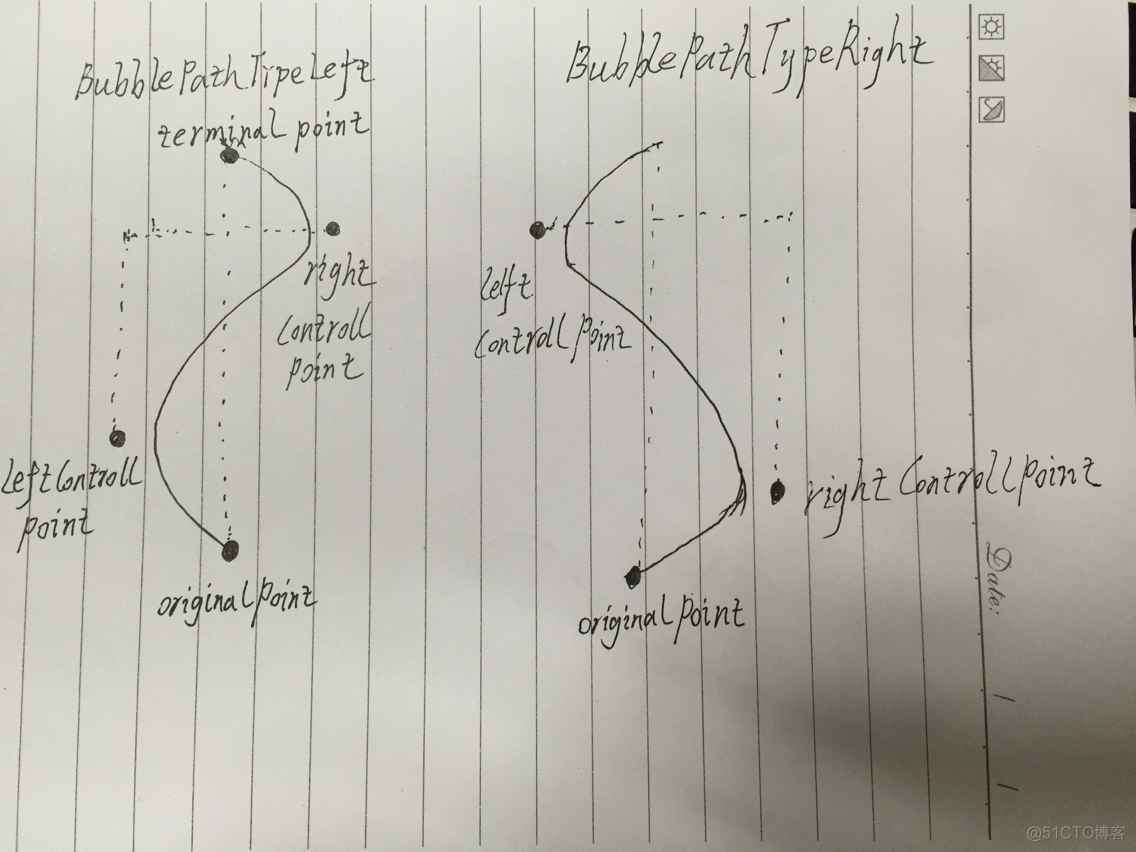 BubblePathTypeLeft
terminal point
right
controll
point
leftcontroll
point
originalpoint
BubblePathTypeRight
left
controllpoint
rightcontrollpoint
originalpoint
Date:
@51CTO博客